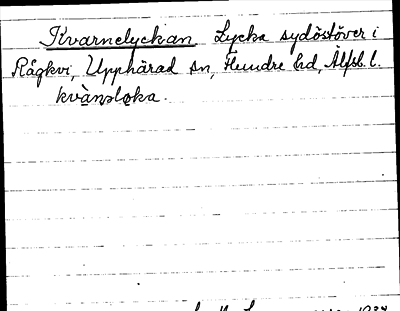 Kvarnelyckan Lycka sydöstöver i
Rågkvi, Upphärad sn, Flundre hd, Älfsb. l.
kvà̀nslo̩ka.